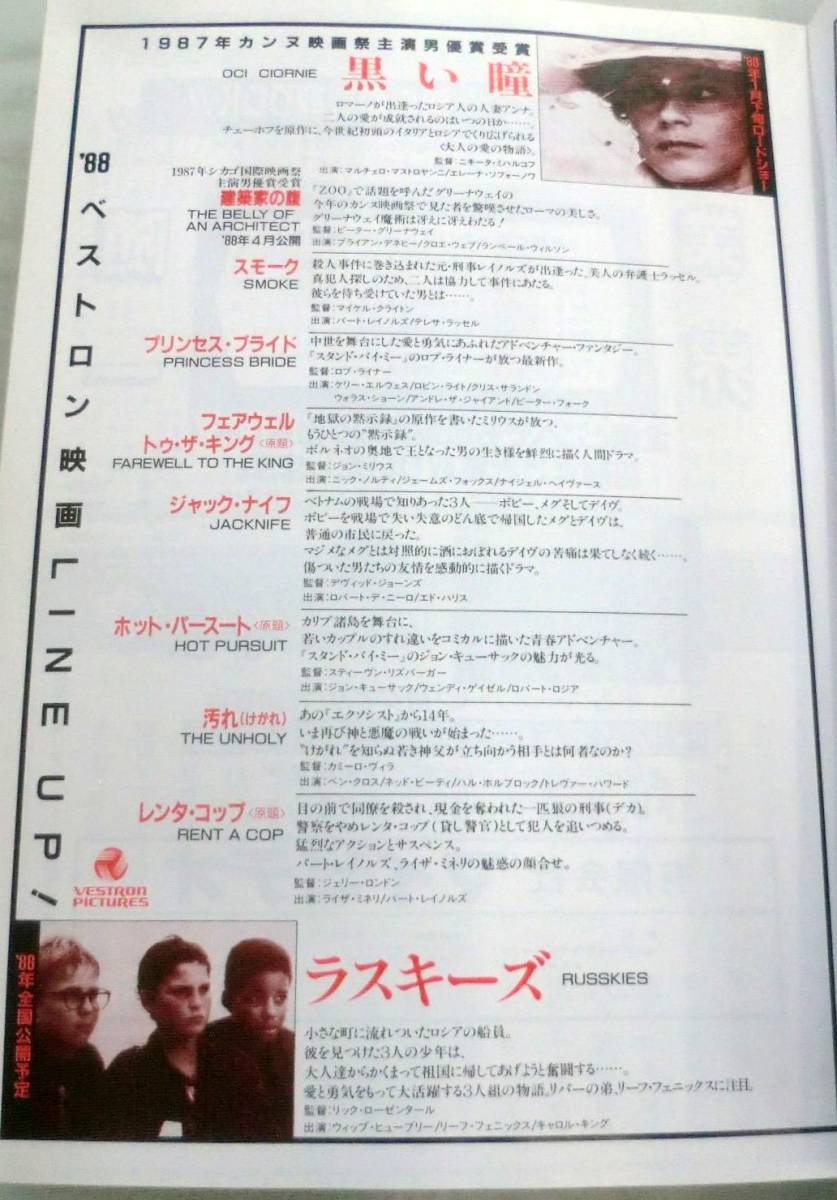 1987年カンヌ映画祭主演男優賞受賞
OCI CIORNIE 黒い瞳
ロマーノが出逢ったロシア人の人妻アンナ。
二人の愛が成就されるのはいつの日か……。
チェーホフを原作に、今世紀初頭のイタリアとロシアでくり広げられる
〈大人の愛の物語〉。
監督:ニキータ・ミハルコフ
出演:マルチェロ・マストロヤンニ/エレーナ・ソフォーノワ
'88年1月下旬ロードショー
'88 ベストロン映画 LINE UP!
1987年シカゴ国際映画祭
主演男優賞受賞
建築家の腹
THE BELLY OF
AN ARCHITECT
'88年4月公開
『ZOO』で話題を呼んだグリーナウェイの
今年のカンヌ映画祭で見た者を驚嘆させたローマの美しさ。
グリーナウェイ魔術は冴えに冴えわたる!
監督:ピーター・グリーナウェイ
出演:ブライアン・デネヒー/クロエ・ウェブ/ランベール・ウィルソン
スモーク
SMOKE
殺人事件に巻き込まれた元・刑事レイノルズが出逢った、美人の弁護士ラッセル。
真犯人探しのため、二人は協力して事件にあたる。
彼らを待ち受けていた男とは……。
監督:マイケル・クライトン
出演:バート・レイノルズ/テレサ・ラッセル
プリンセス・ブライド
PRINCESS BRIDE
中世を舞台にした愛と勇気にあふれたアドベンチャー・ファンタジー。
『スタンド・バイ・ミー』のロブ・ライナーが放つ最新作。
監督:ロブ・ライナー
出演:ケリー・エルウェス/ロビン・ライト/クリス・サランドン
ウォラス・ショーン/アンドレ・ザ・ジャイアント/ピーター・フォーク
フェアウェル
トゥ・ザ・キング〈原題〉
FAREWELL TO THE KING
『地獄の黙示録』の原作を書いたミリウスが放つ、
もうひとつの“黙示録”。
ボルネオの奥地で王となった男の生き様を鮮烈に描く人間ドラマ。
監督:ジョン・ミリウス
出演:ニック・ノルティ/ジェームズ・フォックス/ナイジェル・ヘイヴァース
ジャック・ナイフ
JACKNIFE
ベトナムの戦場で知りあった3人――ボビー、メグそしてデイヴ。
ボビーを戦場で失い失意のどん底で帰国したメグとデイヴは、
普通の市民に戻った。
マジメなメグとは対照的に酒におぼれるデイヴの苦痛は果てしなく続く……。
傷ついた男たちの友情を感動的に描くドラマ。
監督:デヴィッド・ジョーンズ
出演:ロバート・デ・ニーロ/エド・ハリス
ホット・パースート〈原題〉
HOT PURSUIT
カリブ諸島を舞台に、
若いカップルのすれ違いをコミカルに描いた青春アドベンチャー。
『スタンド・バイ・ミー』のジョン・キューサックの魅力が光る。
監督:スティーヴン・リズバーガー
出演:ジョン・キューサック/ウェンディ・ゲイゼル/ロバート・ロジア
汚れ(けがれ)
THE UNHOLY
あの『エクソシスト』から14年。
いま再び神と悪魔の戦いが始まった……。
“けがれ”を知らぬ若き神父が立ち向かう相手とは何者なのか?
監督:カミーロ・ヴィラ
出演:ベン・クロス/ネッド・ビーティ/ハル・ホルブロック/トレヴァー・ハワード
レンタ・コップ〈原題〉
RENT A COP
目の前で同僚を殺され、現金を奪われた一匹狼の刑事(デカ)。
警察をやめレンタ・コップ(貸し警官)として犯人を追いつめる。
猛烈なアクションとサスペンス。
バート・レイノルズ、ライザ・ミネリの魅惑の顔合せ。
監督:ジェリー・ロンドン
出演:ライザ・ミネリ/バート・レイノルズ
VESTRON
PICTURES
'88年全国公開予定
ラスキーズ RUSSKIES
小さな町に流れついたロシアの船員。
彼を見つけた3人の少年は、
大人達からかくまって祖国に帰してあげようと奮闘する……。
愛と勇気をもって大活躍する3人組の物語。リバーの弟、リーフ・フェニックスに注目。
監督:リック・ローゼンタール
出演:ウィップ・ヒューブリー/リーフ・フェニックス/キャロル・キング